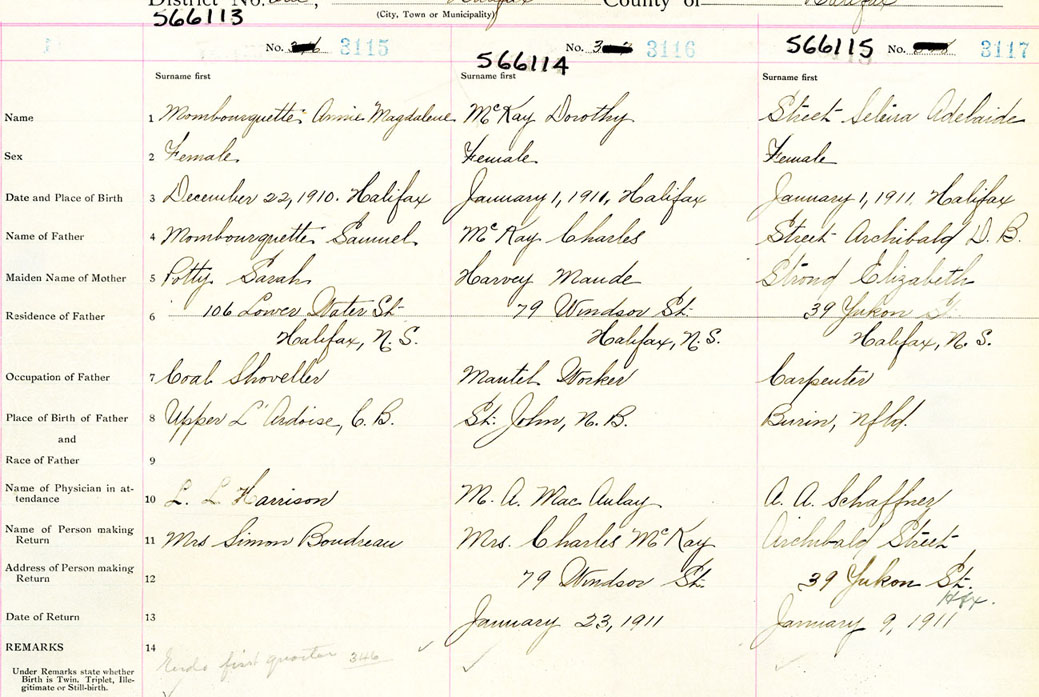 District No.
County of
566113
(City, Town or Municipality)
No. 3115
No. 3116
566115 No. 3117
566114
Surname first
Surname first
Surname first
Name 1 Mombourquette Annie Magdalene McKay Dorothy Street Adelaide
Sex 2 Female Female Female
Date and Place of Birth 3 December 22, 1910. Halifax January 1, 1911, Halifax January 1, 1911, Halifax
Name of Father 4 Mombourquette Samuel McKay Charles Street Archibald D. B.
Maiden Name of Mother 5 Potty Sarah Harvey Maude Strong Elizabeth
Residence of Father 6 106 Lower Water St. 79 Windsor St. 39 Yukon St.
Halifax, N. S. Halifax, N. S. Halifax, N. S.
Occupation of Father 7 Coal Shoveller Mantel Worker Carpenter
Place of Birth of Father 8 Upper L'Ardoise, C. B. St. John, N. B. Burin, Nfld.
and
Race of Father 9
Name of Physician in at-
tendance 10 L. L. Harrison M. A. MacAulay A. A. Schaffner
Name of Person making
Return 11 Mrs Simon Boudreau Mrs. Charles McKay Archibald Street
Address of Person making
Return 12 79 Windsor St. 39 Yukon St.
Hfx.
Date of Return 13 January 23, 1911 January 9, 1911
REMARKS 14
Ends first quarter 346
Under Remarks state whether
Birth is Twin, Triplet, Ille-
gitimate or Still-birth.